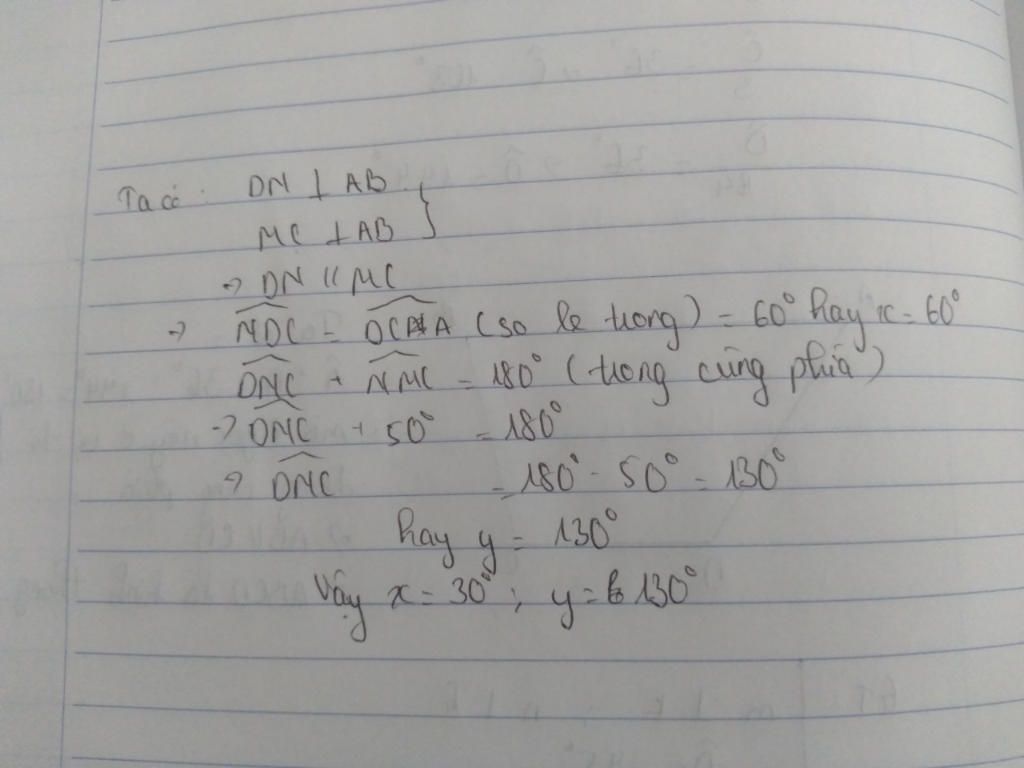 Ta có: DN ⊥ AB
MC ⊥ AB }
⇒ DN // MC
⇒ NDC = DCA (so le trong) = 60° hay x = 60°
DNC + NMC = 180° (trong cùng phía)
⇒ DNC + 50° = 180°
⇒ DNC = 180° - 50° = 130°
hay y = 130°
Vậy x = 30°; y = 130°